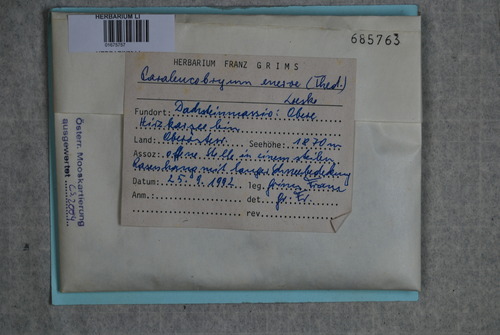 HERBARIUM LI
01673757
685763
HERBARIUM FRANZ GRIMS
Paraleucobryum enerve (Thed.)
Loeske
Fundort: Dachsteinmassiv: Obere
Land: Oberösterr. Seehöhe: 1870 m
Assoz: offene Stelle in einem steilen
Rasenhang mit langer Schneebedeckung
Datum: 25.9.1992 leg. Grims Franz
Anm.: det. Gr. Fr.
rev.
Österr. Mooskartierung
ausgewertet